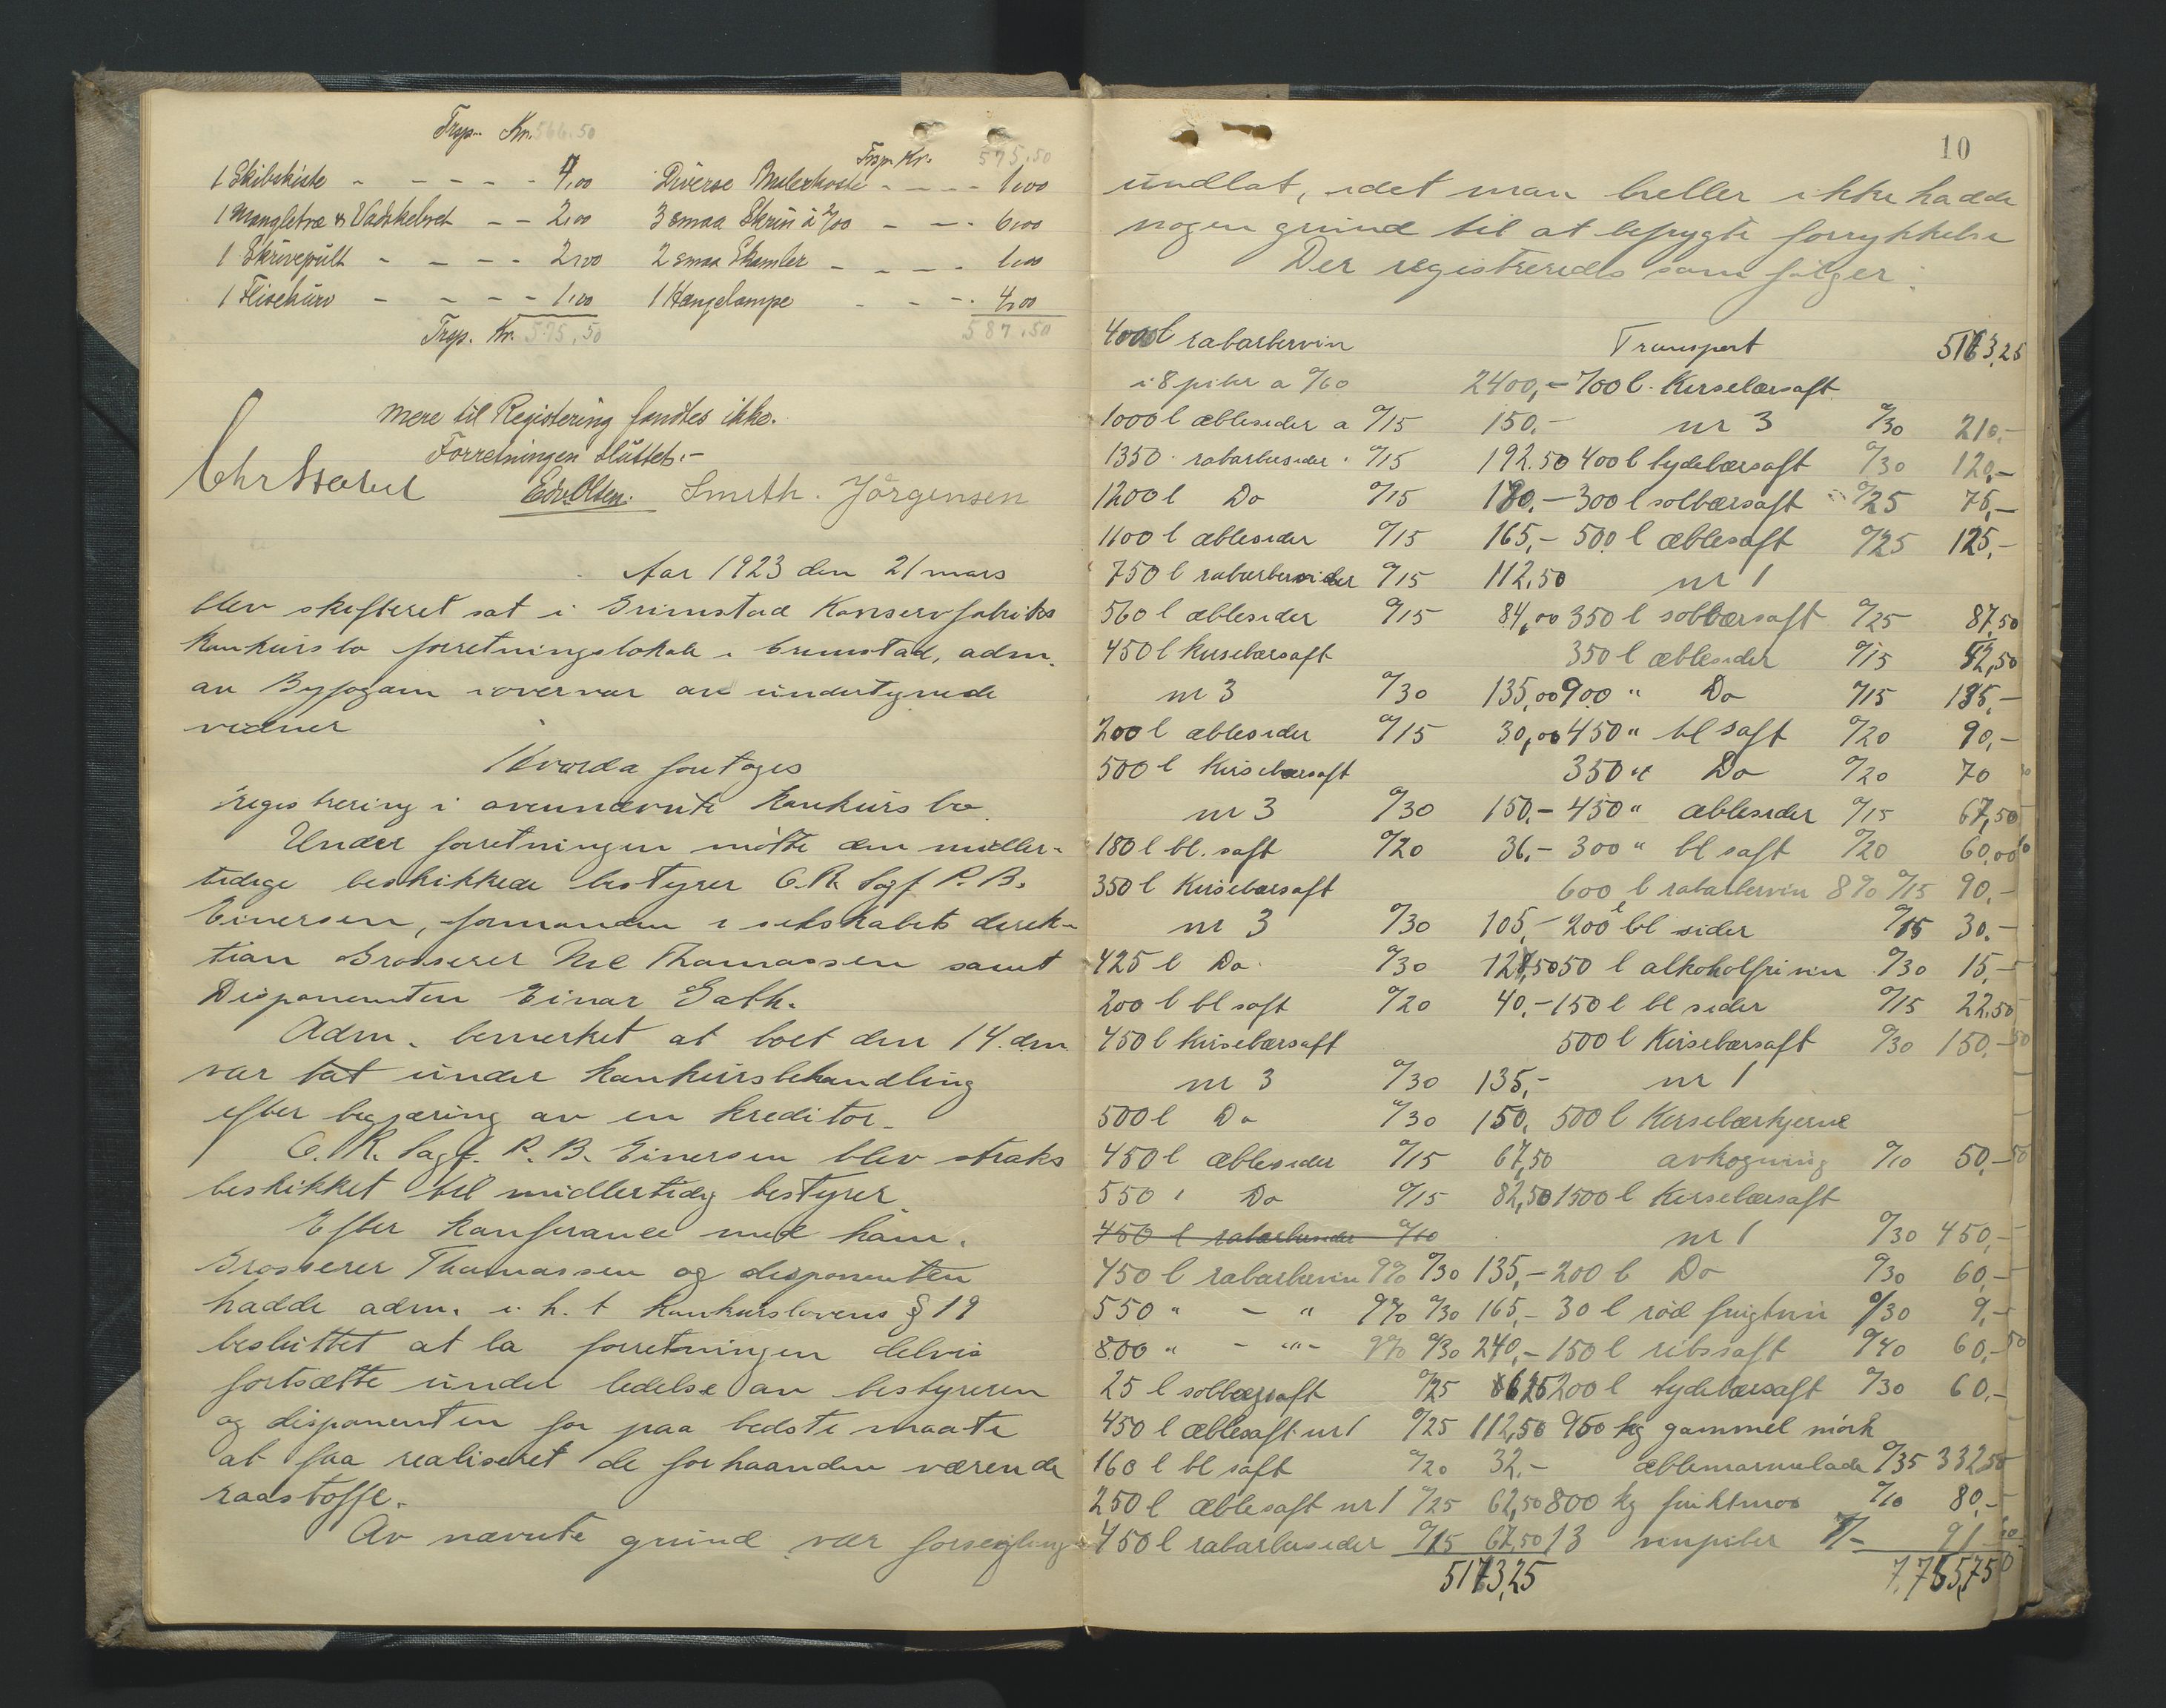 Trsp. Kr. 566.50
1 Skibskiste - - - - - 4,00
1 Mangletræ & Vadskebret - - 2,00
1 Skrivepült - - - - 2,00
1 Flisekürv - - - - 1,00
Trsp. Kr. 575,50
Trsp. Kr. 575,50
Diverse Malerkoste - - - - 1,00
3 smaa Skrin à 2/00 - - - 6,00
2 smaa Skamler - - - - 1,00
1 Hængelampe - - - 4,00
587.50
Mere til Registering fandtes ikke.
Forretningen slüttet.-
Edv. Olsen. Smith. Jörgensen
Aar 1923 den 21 mars
blev skifteret sat i Grimstad Konservfabriks
konkürsbo forretningslokale i Grimstad, adm.
av Byfogden i overvær av ündertegnede
vidner
Hvorda foretages
registrering i ovennævnte konkürsbo.
Ünder forretningen mötte den midler-
tidige beskikkede bestyrer O.R. Sagf. P. B.
Einersen, formanden i selskabets direk-
tion Grosserer Thomassen samt
Disponenten Einar Gath.
Adm. bemerket at boet den 14. dm.
var tat ünder konkürsbehandling
efter begjæring av en kreditor.
O. R. Sagf. P. B. Einersen blev straks
beskikket til midlertidig bestyrer.
Efter konferance med ham,
Grosserer Thomassen og disponenten
hadde adm. i h. t konkurslovens § 19
beslüttet at la forretningen delvis
fortsætte ünder ledelse av bestyreren
og disponenten for paa bedste maate
at faa realiseret de forhaanden værende
raastoffe.
Av nævnte gründ var forsegling
10
ündlat, idet man heller ikke hadde
nogen gründ til at befrygte forrykkelse
Der registreredes som fölger:
4000 l rabarbervin
i 8 piber a %60 2400,-
1000 l æblesider a %15 150.-
1350 rabarbersider %15 192.50
1200 l Do %15 180.-
1100 l æblesider %15 165,-
750 l rabarbersider %15 112,50
560 l æblesider %15 84,00
450 l kirsebærsaft
nr 3 %30 135,00
200 l æblesider %15 30,00
500 l kirsebærsaft
nr 3 %30 150,-
180 l bl. saft %20 36,-
350 l Kirsebærsaft
nr 3 %30 105,-
425 l Do %30 127,50
200 l bl saft %20 40,-
450 l kirsebærsaft
nr 3 %30 135,-
500 l Do %30 150,
450 l æblesider %15 67,50
550 " Do %15 82,50
450 l rabarbersider %10
450 l rabarbervin 9% %30 135,-
550 " - " 9% %30 165,-
800 " - "" - 9% %30 240,-
25 l solbærsaft %25 6,25
450 l æblesaft nr 1 %25 112,50
160 l bl saft %20 32,-
250 l æblesaft nr 1 %25 62,50
450 l rabarbersider %15 67,50
5173,25
Transport 5173,25
700 l. Kirsebærsaft
nr 3 %30 210.-
400 l tydebærsaft %30 120,-
300 l solbærsaft %25 75,-
500 l æblesaft %25 125,-
nr 1
350 l solbærsaft %25 87,50
350 l æblesider %15 52,50
900 " Do %15 135,-
450 " bl saft %20 90,-
350 " Do %20 70
450 " æblesider %15 67,50
300 " bl saft %20 60,00
600 l rabarbervin 8% %15 90,-
200 l bl sider %15 30.-
50 l alkoholfri vin %30 15,-
150 l bl sider %15 22,50
500 l Kirsebærsaft %30 150,-
nr 1
500 l Kirsebærkjerne
avkogning %10 50,-
1500 l Kirsebærsaft
nr 1 %30 450,-
200 l Do %30 60,-
30 l röd frügtvin %30 9,-
150 l ribssaft %40 60,-
200 l tydebærsaft %30 60,-
950 kg gammel mörk
æblemarmelade %35 332,50
800 kg früktmos %10 80,-
13 vinpiber 7/- 91
7,765,75